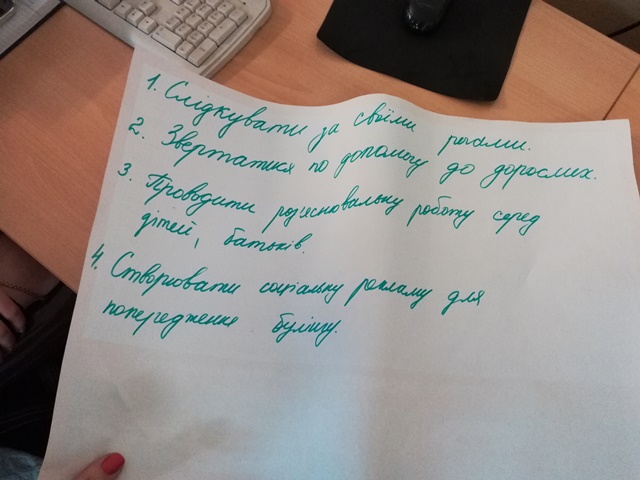 1. Слідкувати за своїми речами.
2. Звертатися по допомогу до дорослих.
3. Проводити роз'яснювальну роботу серед
дітей, батьків.
4. Створювати соціальну рекламу для
попередження булінгу.